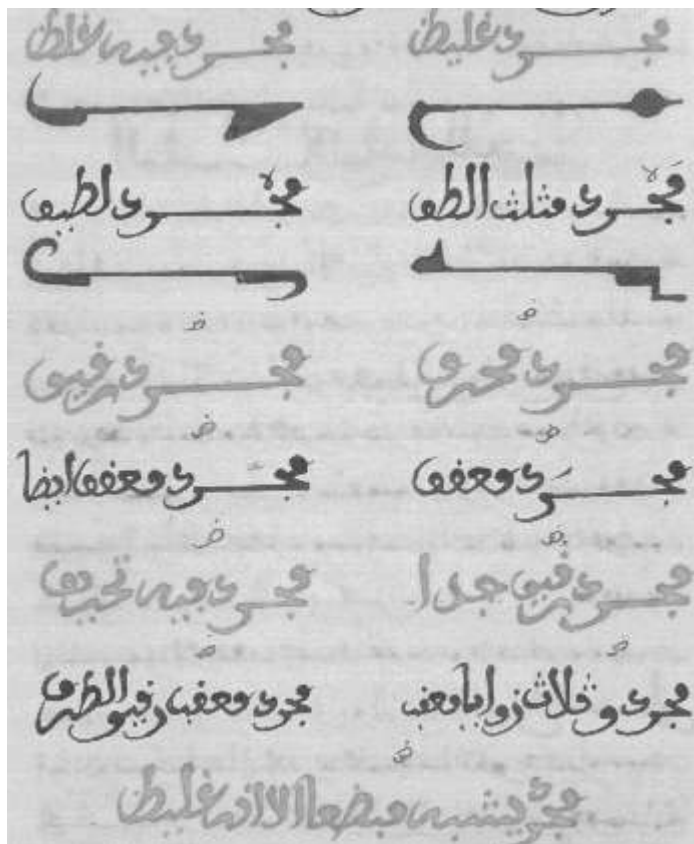 مجرد غليظ
مجرد فيه غلظ
مجرد مثلث
مجرد لطيف
مجرد محرف
مجرد رقيق
مجرد معقف
مجرد معقف ايضا
مجرد رقيق جدا
مجرد فيه تحريف
مجرد وثلاث زوايا معقف
مجرد معقف رقيق الطرف
مجرد يشبه مبضعا الا انه غليظ